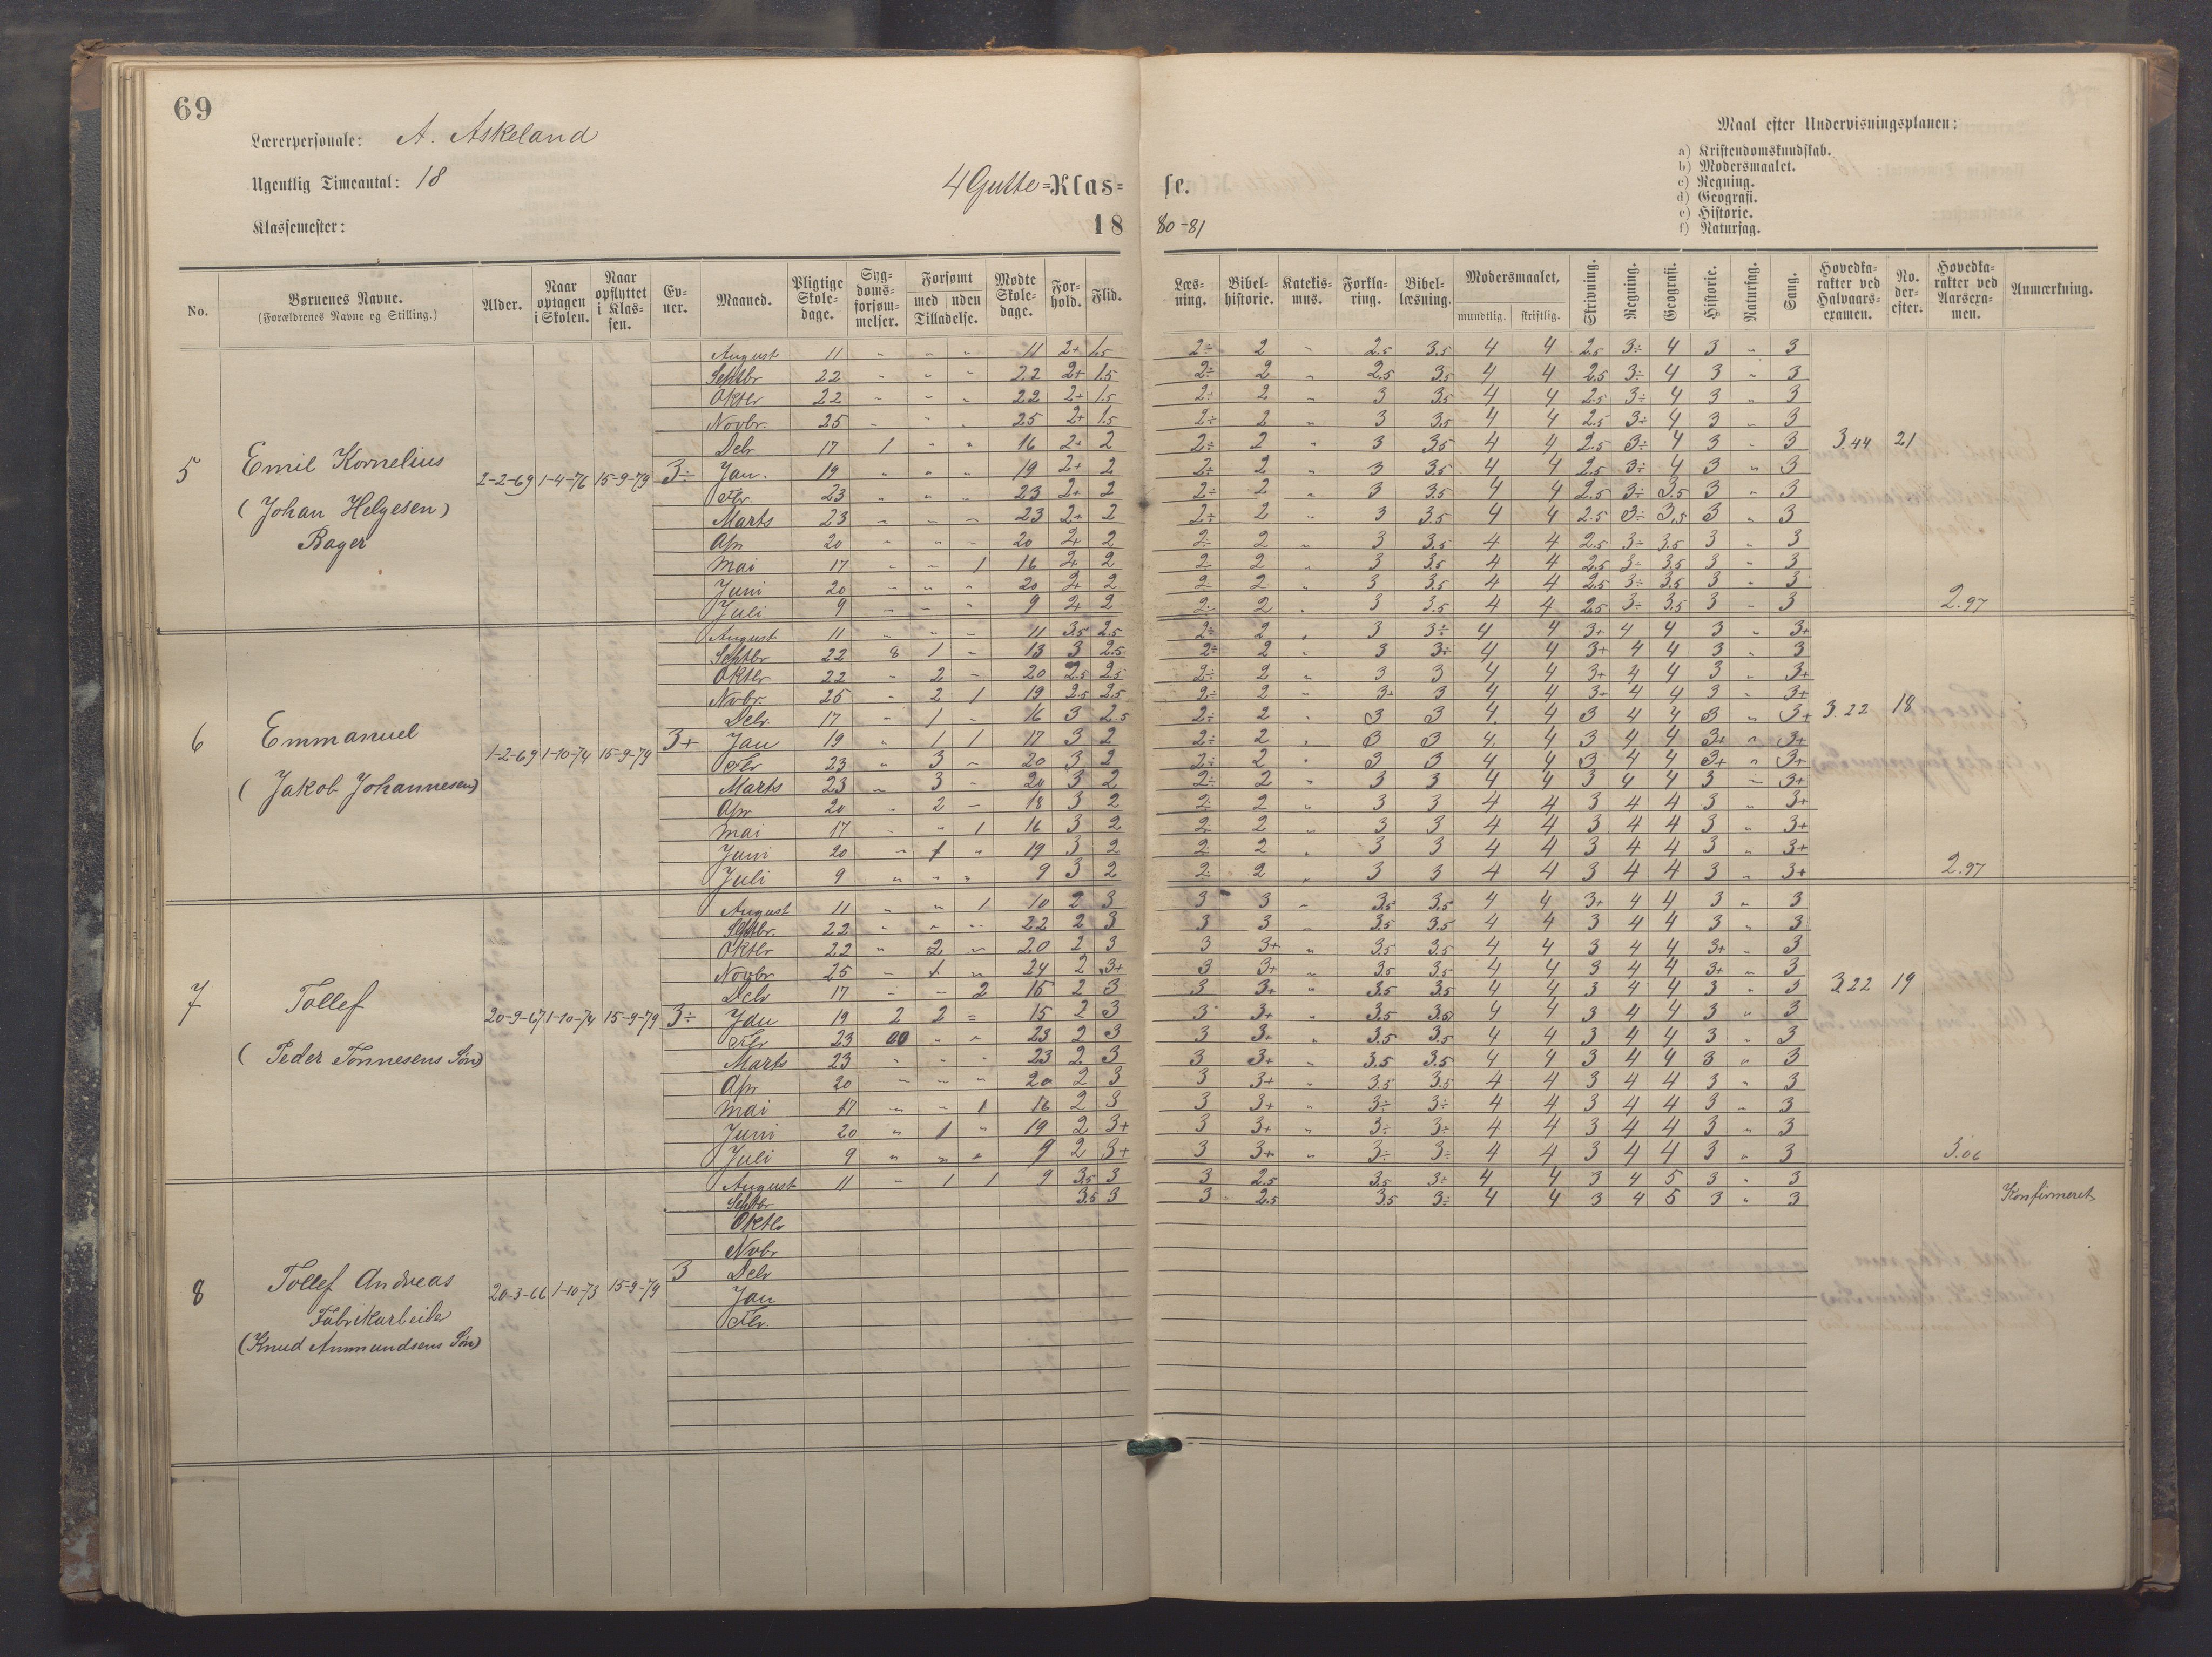 69
Lærerpersonale: A. Askeland
Ugentlig Timeantal: 18
Klassemester:
4 Gutte=Klas= se.
18 80-81
Maal efter Undervisningsplanen:
a) Kristendomskundskab.
b) Modersmaalet.
c) Regning.
d) Geografi.
e) Historie.
f) Naturfag.
No. | Børnenes Navne. (Forældrenes Navne og Stilling.) | Alder. | Naar optagen i Skolen. | Naar opflyttet i Klassen. | Evner. | Maaned. | Pligtige Skoledage. | Sygdomsforsømmelser. | Forsømt med uden Tilladelse. | Mødte Skoledage. | Forhold. | Flid. | Læsning. | Bibelhistorie. | Katekismus. | Forklaring. | Bibellæsning. | Modersmaalet, mundtlig. skriftlig. | Skrivning. | Regning. | Geografi. | Historie. | Naturfag. | Gang. | Hovedkarakter ved Halvaarsexamen. | No. derefter. | Hovedkarakter ved Aarsexamen. | Anmærkning.
5 Emil Kornelius (Johan Helgesen) Bager 2-2-69 1-4-76 15-9-79 3÷
August 11 " " " 11 2+ 1.5 2÷ 2 " 2.5 3.5 4 4 2.5 3÷ 4 3 " 3
Septbr 22 " " " 22 2+ 1.5 2÷ 2 " 2.5 3.5 4 4 2.5 3÷ 4 3 " 3
Oktbr 22 " " " 22 2+ 1.5 2÷ 2 " 3 3.5 4 4 2.5 3÷ 4 3 " 3
Novbr. 25 " " " 25 2+ 1.5 2÷ 2 " 3 3.5 4 4 2.5 3÷ 4 3 " 3
Debr 17 1 " " 16 2+ 2 2÷ 2 " 3 3.5 4 4 2.5 3÷ 4 3 " 3 3.44 21
Jan. 19 " " " 19 2+ 2 2÷ 2 " 3 3.5 4 4 2.5 3÷ 4 3 " 3
Fbr. 23 " " " 23 2+ 2 2÷ 2 " 3 3.5 4 4 2.5 3÷ 3.5 3 " 3
Marts 23 " " " 23 2+ 2 2÷ 2 " 3 3.5 4 4 2.5 3÷ 3.5 3 " 3
Apr 20 " " " 20 2+ 2 2÷ 2 " 3 3.5 4 4 2.5 3÷ 3.5 3 " 3
Mai 17 " " 1 16 2+ 2 2 2 " 3 3.5 4 4 2.5 3÷ 3.5 3 " 3
Juni 20 " " " 20 2+ 2 2 2 " 3 3.5 4 4 2.5 3÷ 3.5 3 " 3
Juli 9 " " " 9 2+ 2 2 2 " 3 3.5 4 4 2.5 3÷ 3.5 3 " 3 2.97
6 Emmanuel (Jakob Johannesen) 1-2-69 1-10-74 15-9-79 3+
August 11 " " " 11 3.5 2.5 2÷ 2 " 3 3÷ 4 4 3+ 4 4 3 " 3+
Septbr 22 8 1 " 13 3 2.5 2÷ 2 " 3 3÷ 4 4 3+ 4 4 3 " 3
Oktbr 22 " 2 " 20 2.5 2.5 2÷ 2 " 3 3 4 4 3+ 4 4 3 " 3+
Novbr. 25 " 2 1 19 2.5 2.5 2÷ 2 " 3+ 3 4 4 3+ 4 4 3 " 3+
Debr. 17 " 1 " 16 3 2.5 2÷ 2 " 3 3 4 4 3 4 4 3 " 3+ 3.22 18
Jan 19 " 1 1 17 3 2 2÷ 2 " 3 3 4 4 3 4 4 3+ " 3+
Fbr 23 " 3 " 20 3 2 2÷ 2 " 3 3 4 4 3 4 4 3+ " 3+
Marts 23 " 3 " 20 3 2 2÷ 2 " 3 3 4 4 3 4 4 3 " 3+
Apr 20 " 2 " 18 3 2 2 2 " 3 3 4 4 3 4 4 3 " 3+
Mai 17 " " 1 16 3 2 2 2 " 3 3 4 4 3 4 4 3 " 3+
Juni 20 " 1 " 19 3 2 2 2 " 3 3 4 4 3 4 4 3 " 3+
Juli 9 " " " 9 3 2 2 2 " 3 3 4 4 3 4 4 3 " 3+ 2.97
7 Tollef (Peder Tønnesens Søn) 20-9-67 1-10-74 15-9-79 3÷
August 11 " " 1 10 2 3 3 3 " 3.5 3.5 4 4 3+ 4 4 3 " 3
Septbr. 22 " " " 22 2 3 3 3 " 3.5 3.5 4 4 3 4 4 3 " 3
Oktbr 22 " 2 " 20 2 3 3 3+ " 3.5 3.5 4 4 3 4 4 3+ " 3
Novbr 25 " 1 " 24 2 3+ 3 3+ " 3.5 3.5 4 4 3 4 4 3+ " 3
Debr 17 " " 2 15 2 3 3 3+ " 3.5 3.5 4 4 3 4 4 3 " 3 3.22 19
Jan 19 2 2 " 15 2 3 3 3+ " 3.5 3.5 4 4 3 4 4 3 " 3
Fbr 23 " " 23 2 3 3 3+ " 3.5 3.5 4 4 3 4 4 3 " 3
Marts 23 " " " 23 2 3 3 3+ " 3.5 3.5 4 4 3 4 4 3 " 3
Apr 20 " " " 20 2 3 3 3+ " 3.5 3.5 4 4 3 4 4 3 " 3
Mai 17 " " 1 16 2 3 3 3+ " 3÷ 3÷ 4 4 3 4 4 3 " 3
Juni 20 " 1 " 19 2 3+ 3 3+ " 3÷ 3÷ 4 4 3 4 4 3 " 3
Juli 9 " " " 9 2 3+ 3 3+ " 3÷ 3÷ 4 4 3 4 4 3 " 3 3.06
8 Tollef Andreas Fabrikarbeider (Knud Ammundsens Søn) 20-3-66 1-10-73 15-9-79 3
August 11 " 1 1 9 3.5 3 3 2.5 3.5 3÷ 4 4 3 4 5 3 " 3
Septbr 3.5 3 3 2.5 3.5 3÷ 4 4 3 4 5 3 " 3 Konfirmeret
Oktbr
Novbr
Debr
Jan
Fbr.